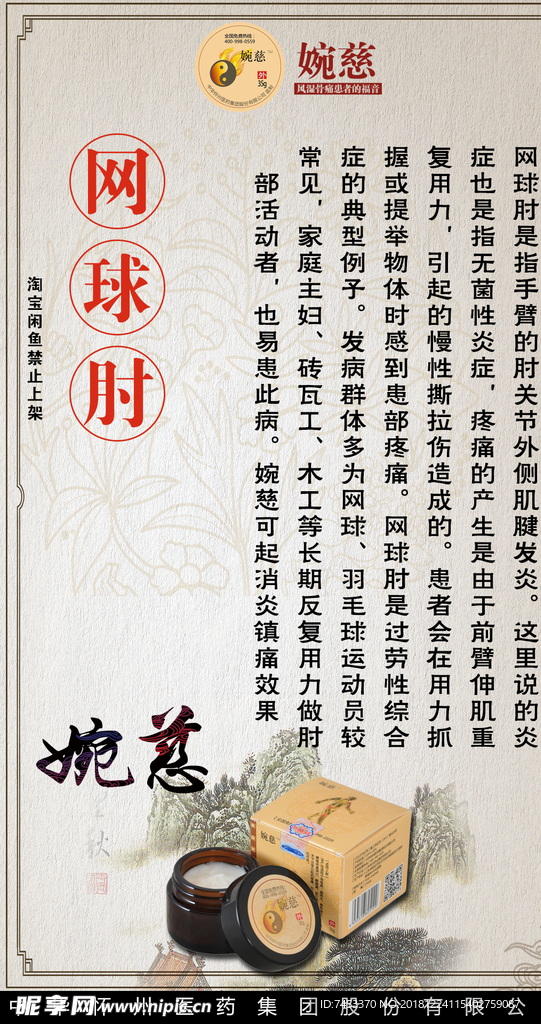 全国免费热线：
400-998-0559
婉慈
外
35g
婉慈
风湿骨痛患者的福音
网球肘是指手臂的肘关节外侧肌腱发炎。这里说的炎
症也是指无菌性炎症，疼痛的产生是由于前臂伸肌重
复用力，引起的慢性撕拉伤造成的。患者会在用力抓
握或提举物体时感到患部疼痛。网球肘是过劳性综合
症的典型例子。发病群体多为网球、羽毛球运动员较
常见，家庭主妇、砖瓦工、木工等长期反复用力做肘
部活动者，也易患此病。婉慈可起消炎镇痛效果
网球肘
淘宝闲鱼禁止上架
婉慈
婉慈
婉慈
昵享网 www.nipic.cn
州医药集团股份有限公